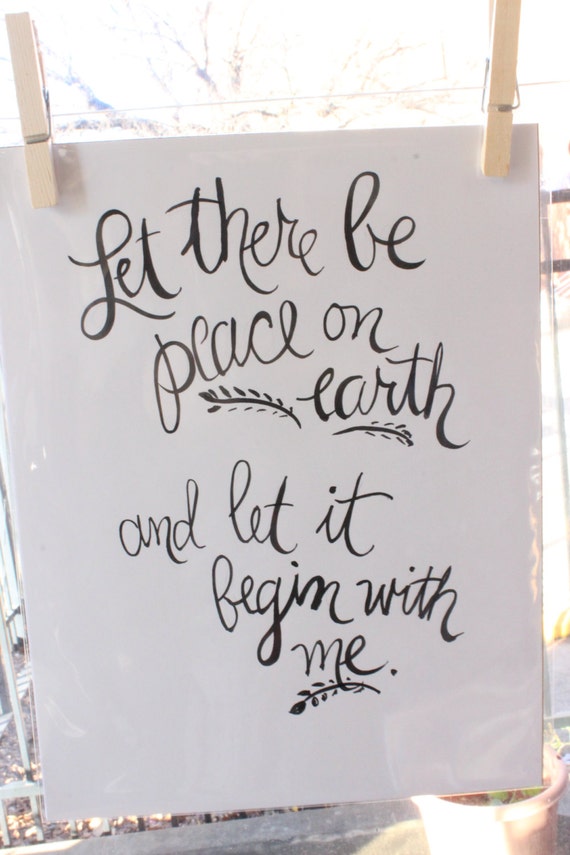 Let there be
peace on
earth
and let it
begin with
me.